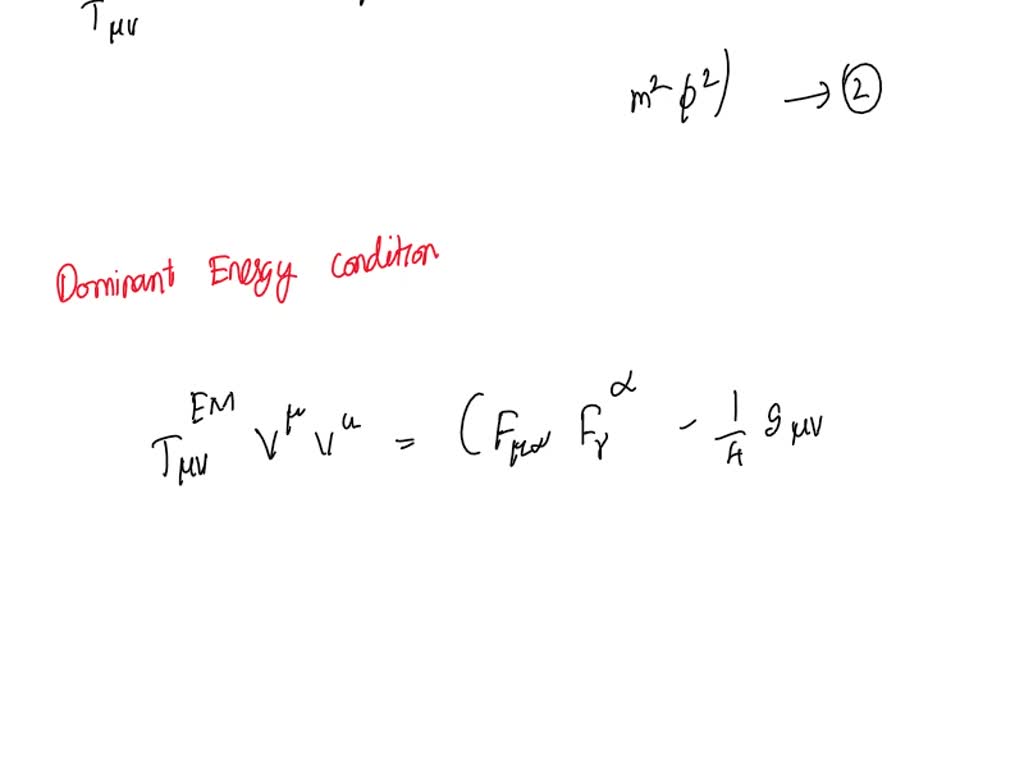 T_μν
m² φ²) → ②
Dominant Energy condition
T_μν^EM V^μ V^u = (F_μα F_γ^α - 1/4 g_μν